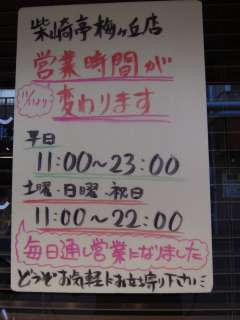 柴崎亭梅ヶ丘店
営業時間が
11/1より
変わります
平日
11:00〜23:00
土曜・日曜・祝日
11:00〜22:00
毎日通し営業になりました
どうぞお気軽にお立ち寄り下さい